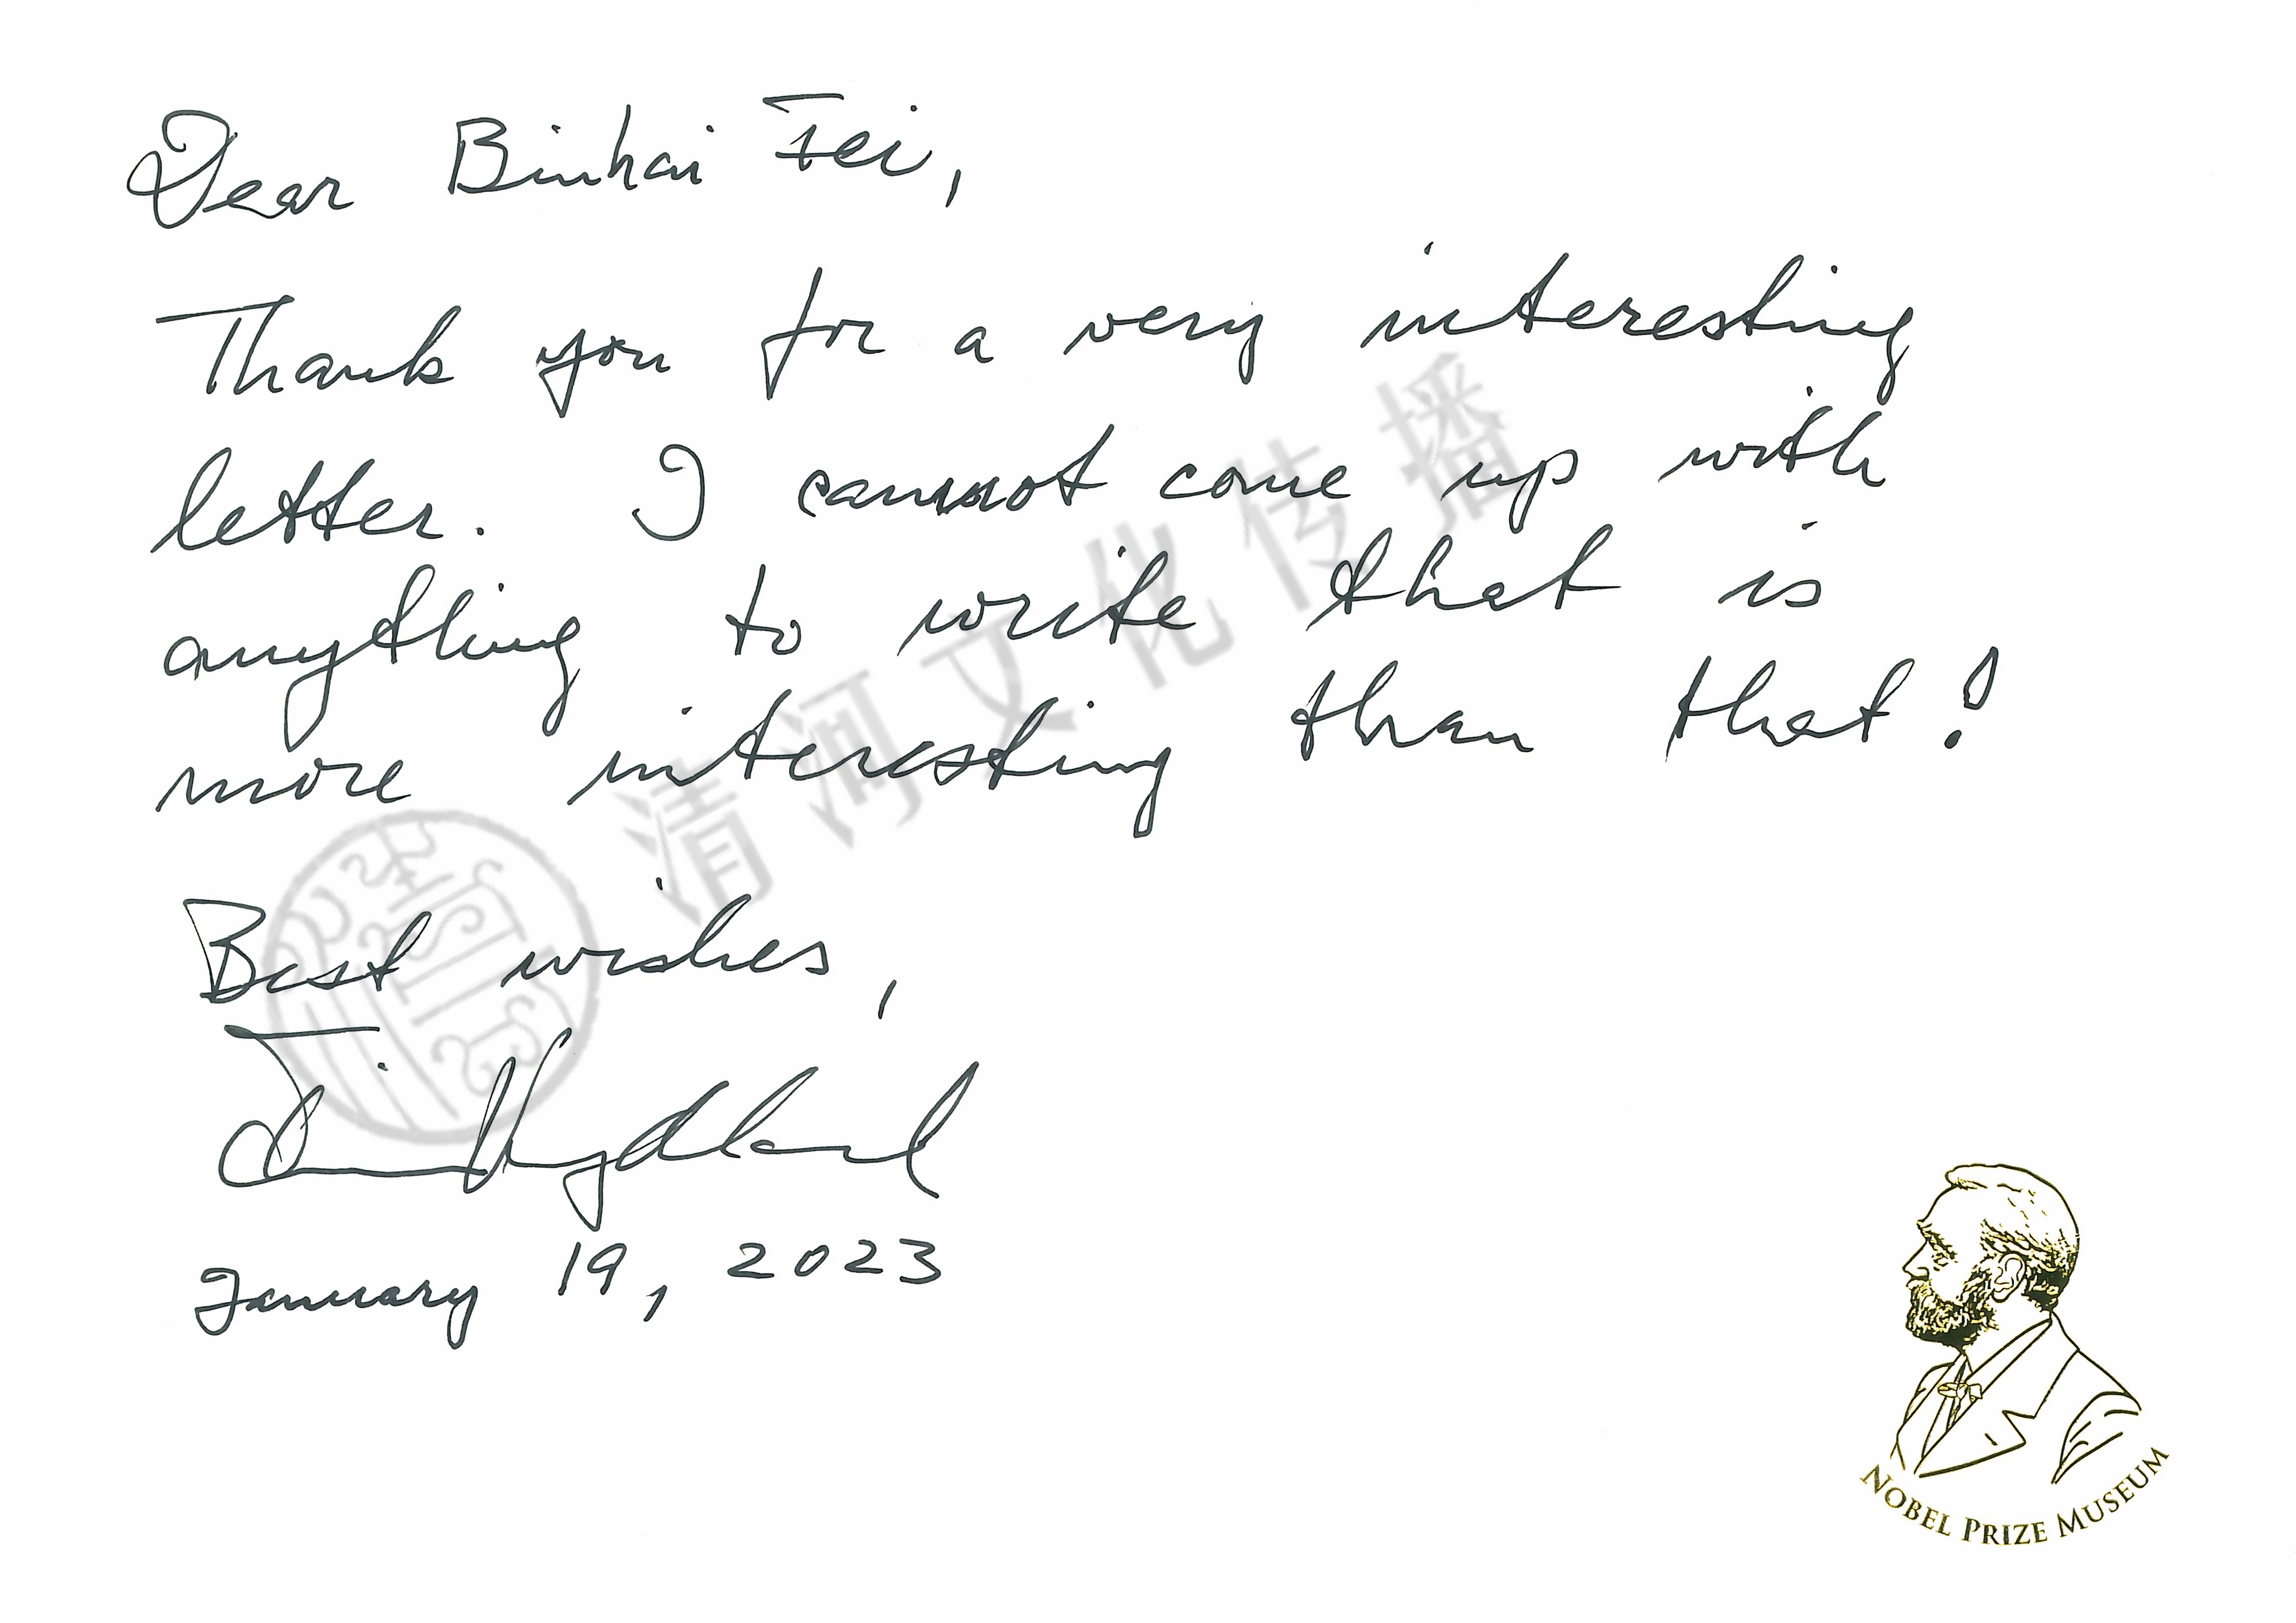 Dear Binhai Fei,
Thank you for a very interesting
letter. I cannot come up with
anything to write that is
more interesting than that!
Best wishes,
Finn Kydland
January 19, 2023
清河文化传播
NOBEL PRIZE MUSEUM